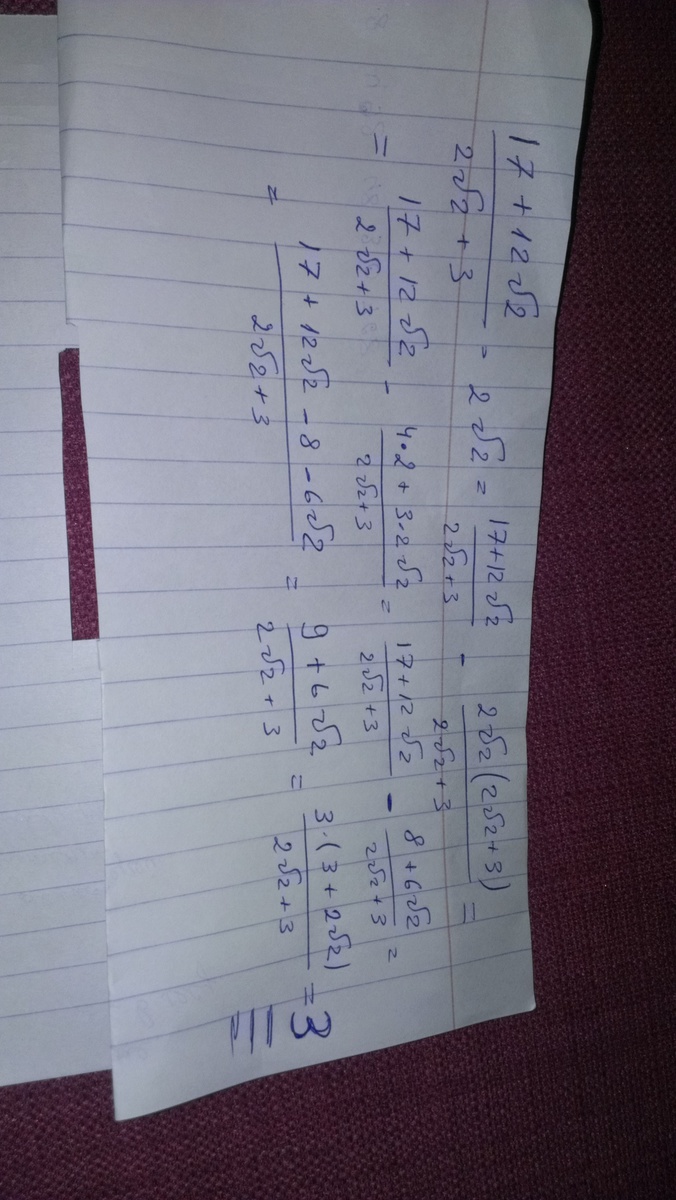 (17 + 12√2)/(2√2 + 3) - 2√2 = (17+12√2)/(2√2+3) - (2√2(2√2+3))/(2√2+3) =
= (17 + 12√2)/(2√2+3) - (4·2 + 3·2√2)/(2√2+3) = (17+12√2)/(2√2+3) - (8+6√2)/(2√2+3) =
= (17 + 12√2 - 8 - 6√2)/(2√2+3) = (9+6√2)/(2√2+3) = (3·(3+2√2))/(2√2+3) = 3